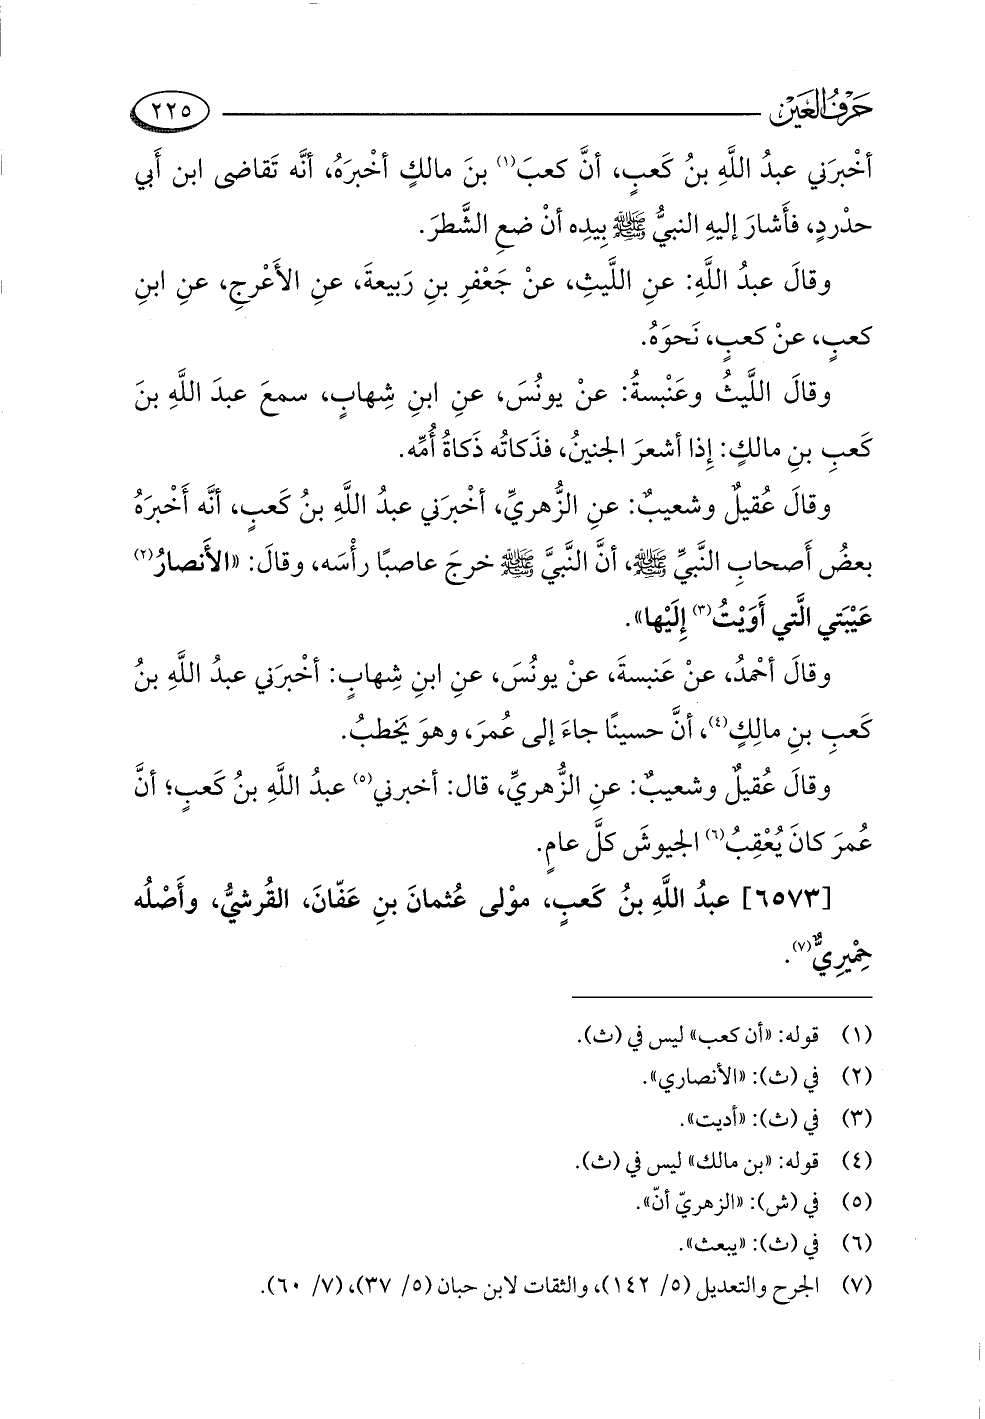 حَرْفُ العَيْن ٢٢٥
أخْبرَني عبدُ اللَّهِ بنُ كَعبٍ، أنَّ كعبَ(١) بنَ مالكٍ أخْبرَهُ، أنَّه تَقاضى ابن أبي
حدْردٍ، فأَشارَ إليهِ النبيُّ ﷺ بِيدِه أنْ ضعِ الشَّطرَ.
وقالَ عبدُ اللَّهِ: عنِ اللَّيثِ، عنْ جَعْفرِ بنِ رَبيعةَ، عنِ الأَعْرجِ، عنِ ابنِ
كعبٍ، عنْ كعبٍ، نَحوَهُ.
وقالَ اللَّيثُ وعَنْبسةُ: عنْ يونُسَ، عنِ ابنِ شِهابٍ، سمعَ عبدَ اللَّهِ بنَ
كَعبِ بنِ مالكٍ: إذا أشعرَ الجنينُ، فذَكاتُه ذَكاةُ أُمِّه.
وقالَ عُقيلٌ وشعيبٌ: عنِ الزُّهريِّ، أخْبرَني عبدُ اللَّهِ بنُ كَعبٍ، أنَّه أَخْبرَهُ
بعضُ أَصحابِ النَّبيِّ ﷺ، أنَّ النَّبيَّ ﷺ خرجَ عاصبًا رأْسَه، وقالَ: «الأَنصارُ(٢)
عَيْبَتي الَّتي أَوَيْتُ(٣) إِلَيْها».
وقالَ أحْمدُ، عنْ عَنبسةَ، عنْ يونُسَ، عنِ ابنِ شِهابٍ: أخْبرَني عبدُ اللَّهِ بنُ
كَعبِ بنِ مالِكٍ(٤)، أنَّ حسينًا جاءَ إلى عُمرَ، وهوَ يَخطبُ.
وقالَ عُقيلٌ وشعيبٌ: عنِ الزُّهريِّ، قال: أخبرني(٥) عبدُ اللَّهِ بنُ كَعبٍ؛ أنَّ
عُمرَ كانَ يُعْقِبُ(٦) الجيوشَ كلَّ عامٍ.
[٦٥٧٣] عبدُ اللَّهِ بنُ كَعبٍ، موْلى عُثمانَ بنِ عَفّانَ، القُرشيُّ، وأَصْلُه
حِمْيرِيٌّ(٧).
(١) قوله: «أن كعب» ليس في (ث).
(٢) في (ث): «الأنصاري».
(٣) في (ث): «أديت».
(٤) قوله: «بن مالك» ليس في (ث).
(٥) في (ش): «الزهريّ أنّ».
(٦) في (ث): «يبعث».
(٧) الجرح والتعديل (٥/ ١٤٢)، والثقات لابن حبان (٥/ ٣٧)، (٧/ ٦٠).